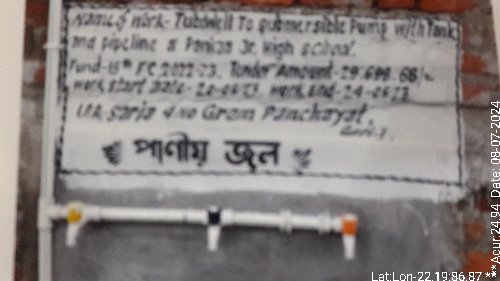 Name of Work- Tubewell To Submersible Pump with Tank
and pipeline at Panion Jr. High School.
Fund-15th F.C. 2022-23, Tender Amount-29,698.68/-
Work Start Date- 20-06-23 Work End-24-06-23
Saria Gram Panchayat,
পাণীয় জল
Lat:Lon-22.19:86.87 ***Acur:24.94 Date: 08-07-2024